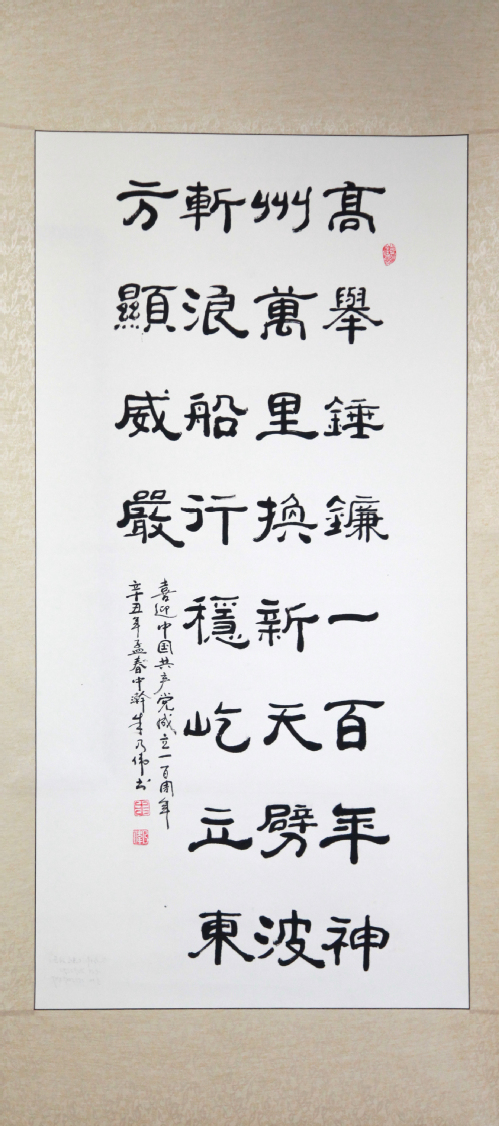 高舉錘鐮一百年神
州萬里換新天劈波
斬浪船行穩屹立東
方顯威嚴
喜迎中国共产党成立一百周年
辛丑年孟春中浣李乃伟书